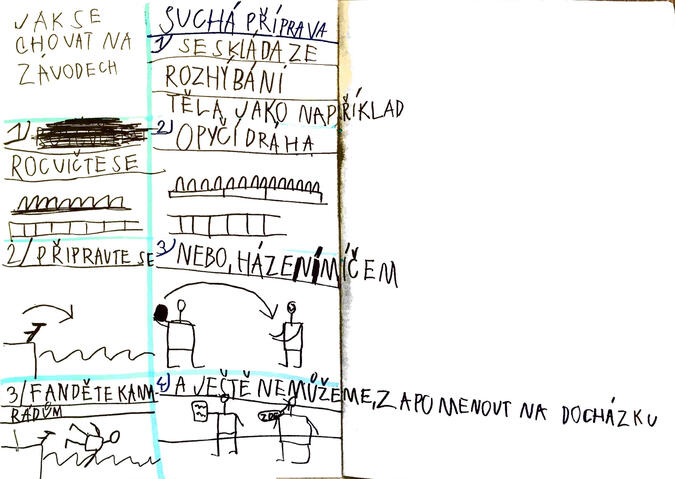 JAK SE
CHOVAT NA
ZÁVODECH
1/
ROCVIČTE SE
2/ PŘIPRAVTE SE
3/ FANDĚTE KAMA-
RÁDŮM
SUCHÁ PŘÍPRAVA
1/ SE SKLÁDA ZE
ROZHÝBÁNÍ
TĚLA JAKO NAPŘÍKLAD
2/ OPYČÍ DRÁHA
3/ NEBO, HÁZENÍ MÍČEM
4/ A JEŠTĚ NEMŮŽEME, ZAPOMENOUT NA DOCHÁZKU